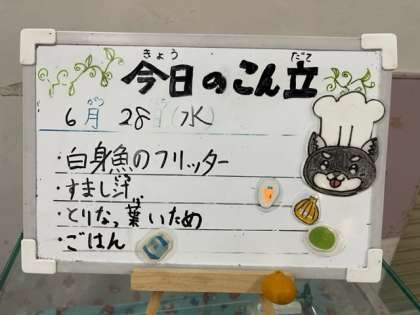 きょう だて
今日のこん立
がつ
6月 28日(水)
・白身魚のフリッター
・すまし汁
・とりなっ葉いため
・ごはん